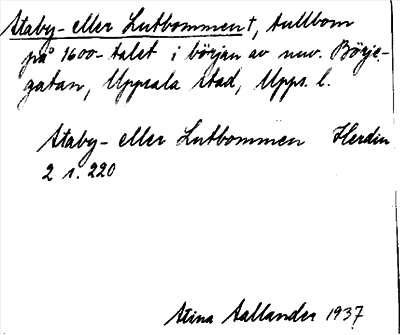 Staby- eller Lutbommen†, tullbom
på 1600-talet i början av nuv. Börje-
gatan, Uppsala stad, Upps. l.
Staby- eller Lutbommen Herdin
2 s. 220
Stina Aallander 1937